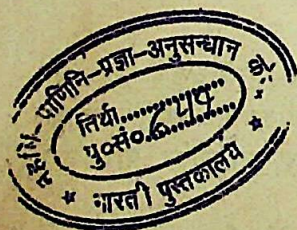 महर्षि-पाणिनि-प्रज्ञा-अनुसन्धान के॰
तिथी...............
पु०सं०.६५५.........
भारती पुस्तकालय